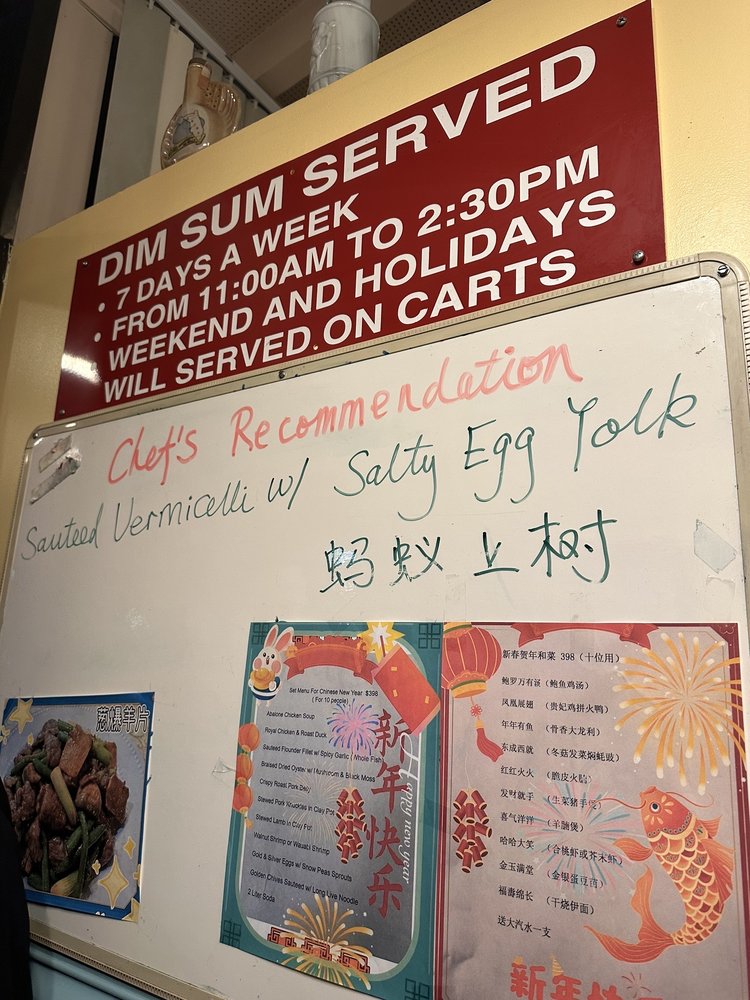 DIM SUM SERVED
• 7 DAYS A WEEK
• FROM 11:00AM TO 2:30PM
WEEKEND AND HOLIDAYS
WILL SERVED ON CARTS
Chef's Recommendation
Sauteed Vermicelli w/ Salty Egg Yolk
蚂蚁上树
葱爆羊片
Set Menu For Chinese New Year $398
( For 10 people)
Abalone Chicken Soup
Royal Chicken & Roast Duck
Sauteed Flounder Fillet w/ Spicy Garlic (Whole Fish)
Braised Dried Oyster w/ Mushroom & Black Moss
Crispy Roast Pork Belly
Stewed Pork Knuckles in Clay Pot
Stewed Lamb in Clay Pot
Walnut Shrimp or Wasabi Shrimp
Gold & Silver Eggs w/ Snow Peas Sprouts
Golden Chives Sauteed w/ Long Live Noodle
2 Liter Soda
新年快乐
Happy new year
新春贺年和菜 398（十位用）
鲍罗万有 （鲍鱼鸡汤）
凤凰展翅 （贵妃鸡拼火鸭）
年年有鱼 （骨香大龙利）
东成西就 （冬菇发菜焖蚝豉）
红红火火 （脆皮火腩）
发财就手 （生菜猪手煲）
喜气洋洋 （羊腩煲）
哈哈大笑 （合桃虾或芥末虾）
金玉满堂 （金银蛋豆苗）
福壽绵长 （干烧伊面）
送大汽水一支
新年快